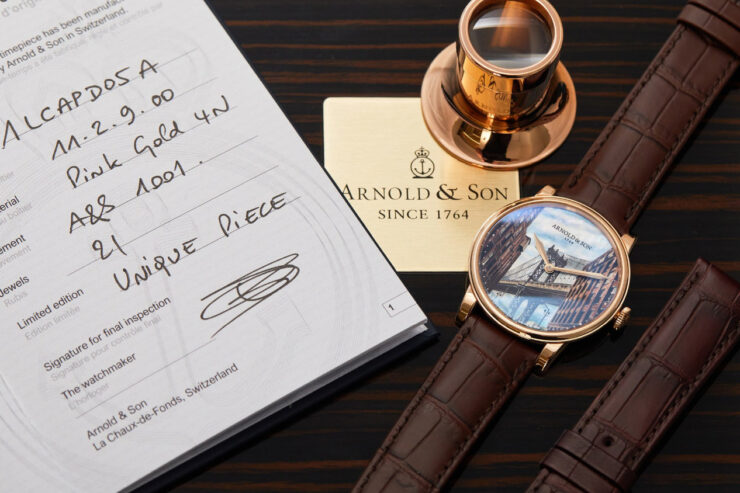 d'origi
timepiece has been manufac
y Arnold & Son in Switzerland.
1LCAPD05A
11.2.9.00
Pink Gold 4N
A&S 1001.
21
UNIQUE PIECE
erial
au boîtier
vement
uvement
Jewels
Rubis
Limited edition
Édition limitée
Signature for final inspection
Signature pour contrôle final
The watchmaker
L'horloger
Arnold & Son
La Chaux-de-Fonds, Switzerland
1
ARNOLD & SON
SINCE 1764
ARNOLD & SON
1764